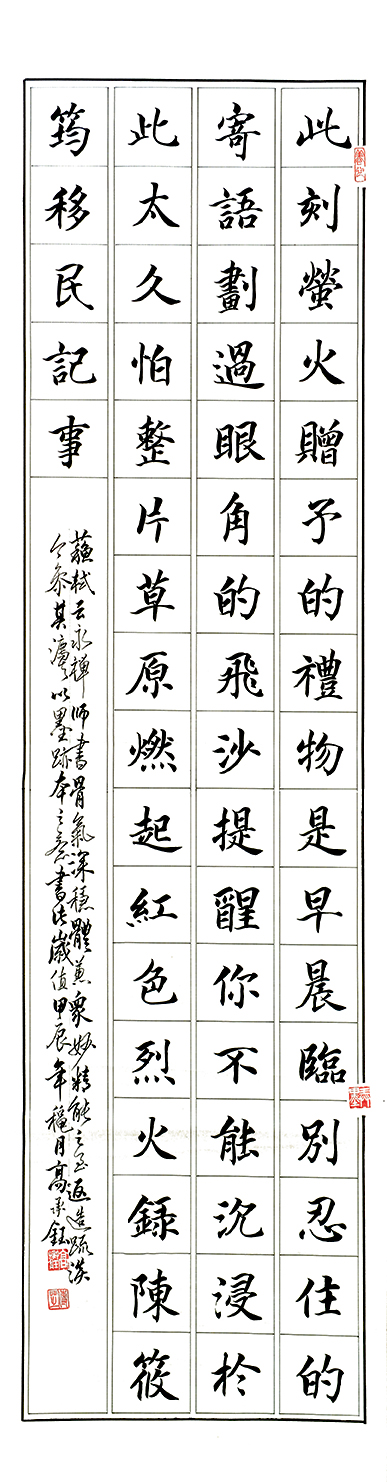 此刻螢火贈予的禮物是早晨臨別忍住的
寄語劃過眼角的飛沙提醒你不能沉浸於
此太久怕整片草原燃起紅色烈火錄陳筱
筠移民記事
蘇軾云永禪師書骨氣深穩體兼眾妙精能之至返造疏淡
今參其法以墨跡本之意書此歲值甲辰年穐月高承鈺